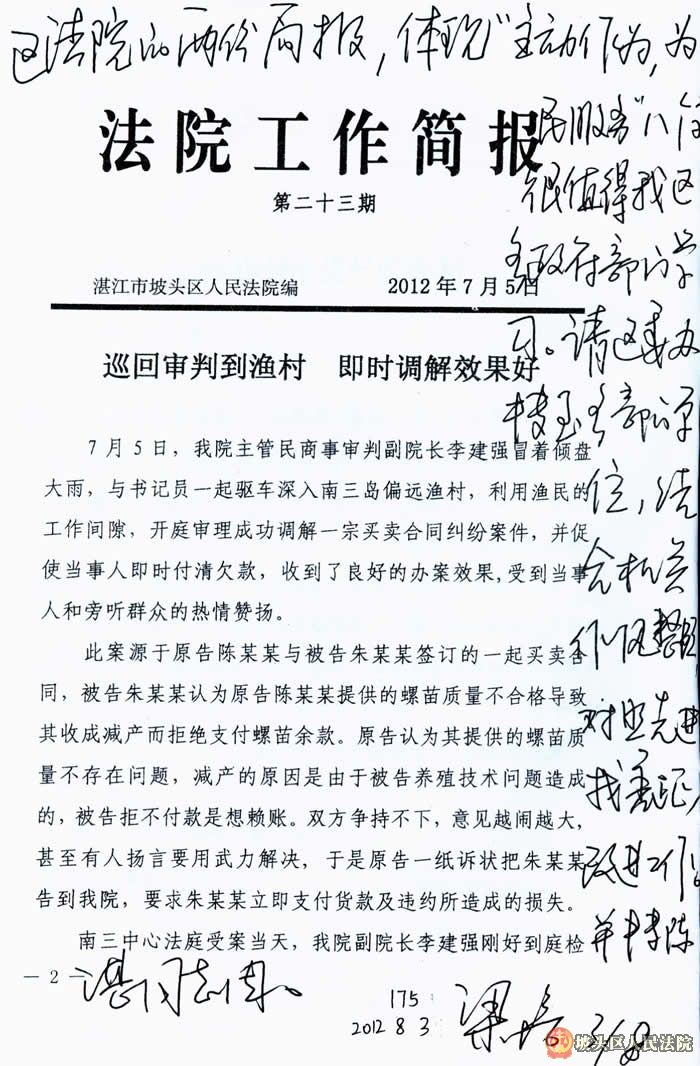 区法院的两份简报，体现"主动作为，为
民服务"八字
很值得我区
各政府部门学
习。请区委办
转至各部门单
位，结
合机关
作风整顿
对照先进
找差距，
改进工作。
并转陈
湛同志阅。
法院工作简报
第二十三期
湛江市坡头区人民法院编 2012年7月5日
巡回审判到渔村 即时调解效果好
7月5日，我院主管民商事审判副院长李建强冒着倾盘
大雨，与书记员一起驱车深入南三岛偏远渔村，利用渔民的
工作间隙，开庭审理成功调解一宗买卖合同纠纷案件，并促
使当事人即时付清欠款，收到了良好的办案效果,受到当事
人和旁听群众的热情赞扬。
此案源于原告陈某某与被告朱某某签订的一起买卖合
同，被告朱某某认为原告陈某某提供的螺苗质量不合格导致
其收成减产而拒绝支付螺苗余款。原告认为其提供的螺苗质
量不存在问题，减产的原因是由于被告养殖技术问题造成
的，被告拒不付款是想赖账。双方争持不下，意见越闹越大，
甚至有人扬言要用武力解决，于是原告一纸诉状把朱某某
告到我院，要求朱某某立即支付货款及违约所造成的损失。
南三中心法庭受案当天，我院副院长李建强刚好到庭检
— 2 —
175
2012 8 3
坡头区人民法院